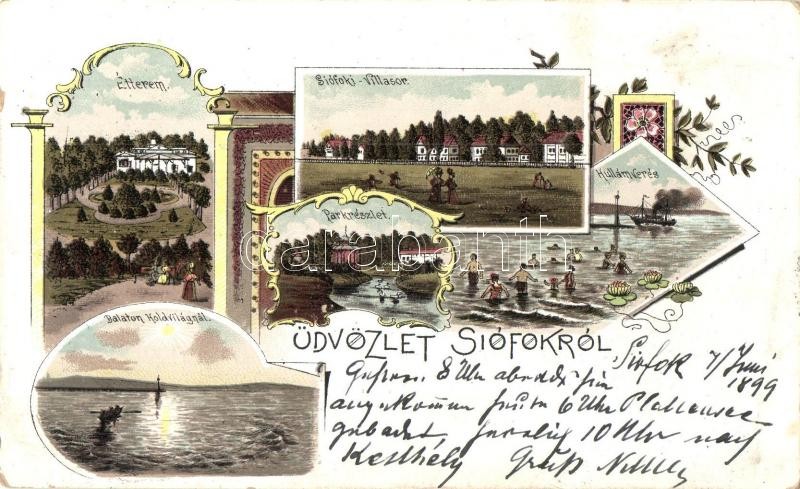 Étterem.
Siófoki-Villasor.
Hullámverés
Parkrészlet.
Balaton Holdvilágnál.
darabanth.com
ÜDVÖZLET SIÓFOKRÓL
Siofok 7/ Juni
1899
8 Uhr abends hier
angekommen 6 Uhr Plattensee
gebadet 10 Uhr nach
Keszthely Gruß